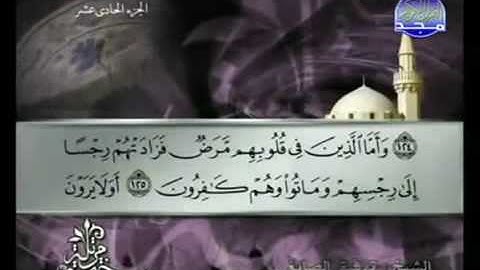 الجزء الحادى عشر
المجد
١٢٤ وَأَمَّا الَّذِينَ فِي قُلُوبِهِم مَّرَضٌ فَزَادَتْهُمْ رِجْسًا
إِلَىٰ رِجْسِهِمْ وَمَاتُوا۟ وَهُمْ كَـٰفِرُونَ ١٢٥ أَوَلَا يَرَوْنَ